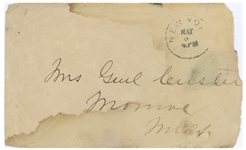 NEW YO
MAY
6
PM
Mrs Genl Custer
Monroe
Mich